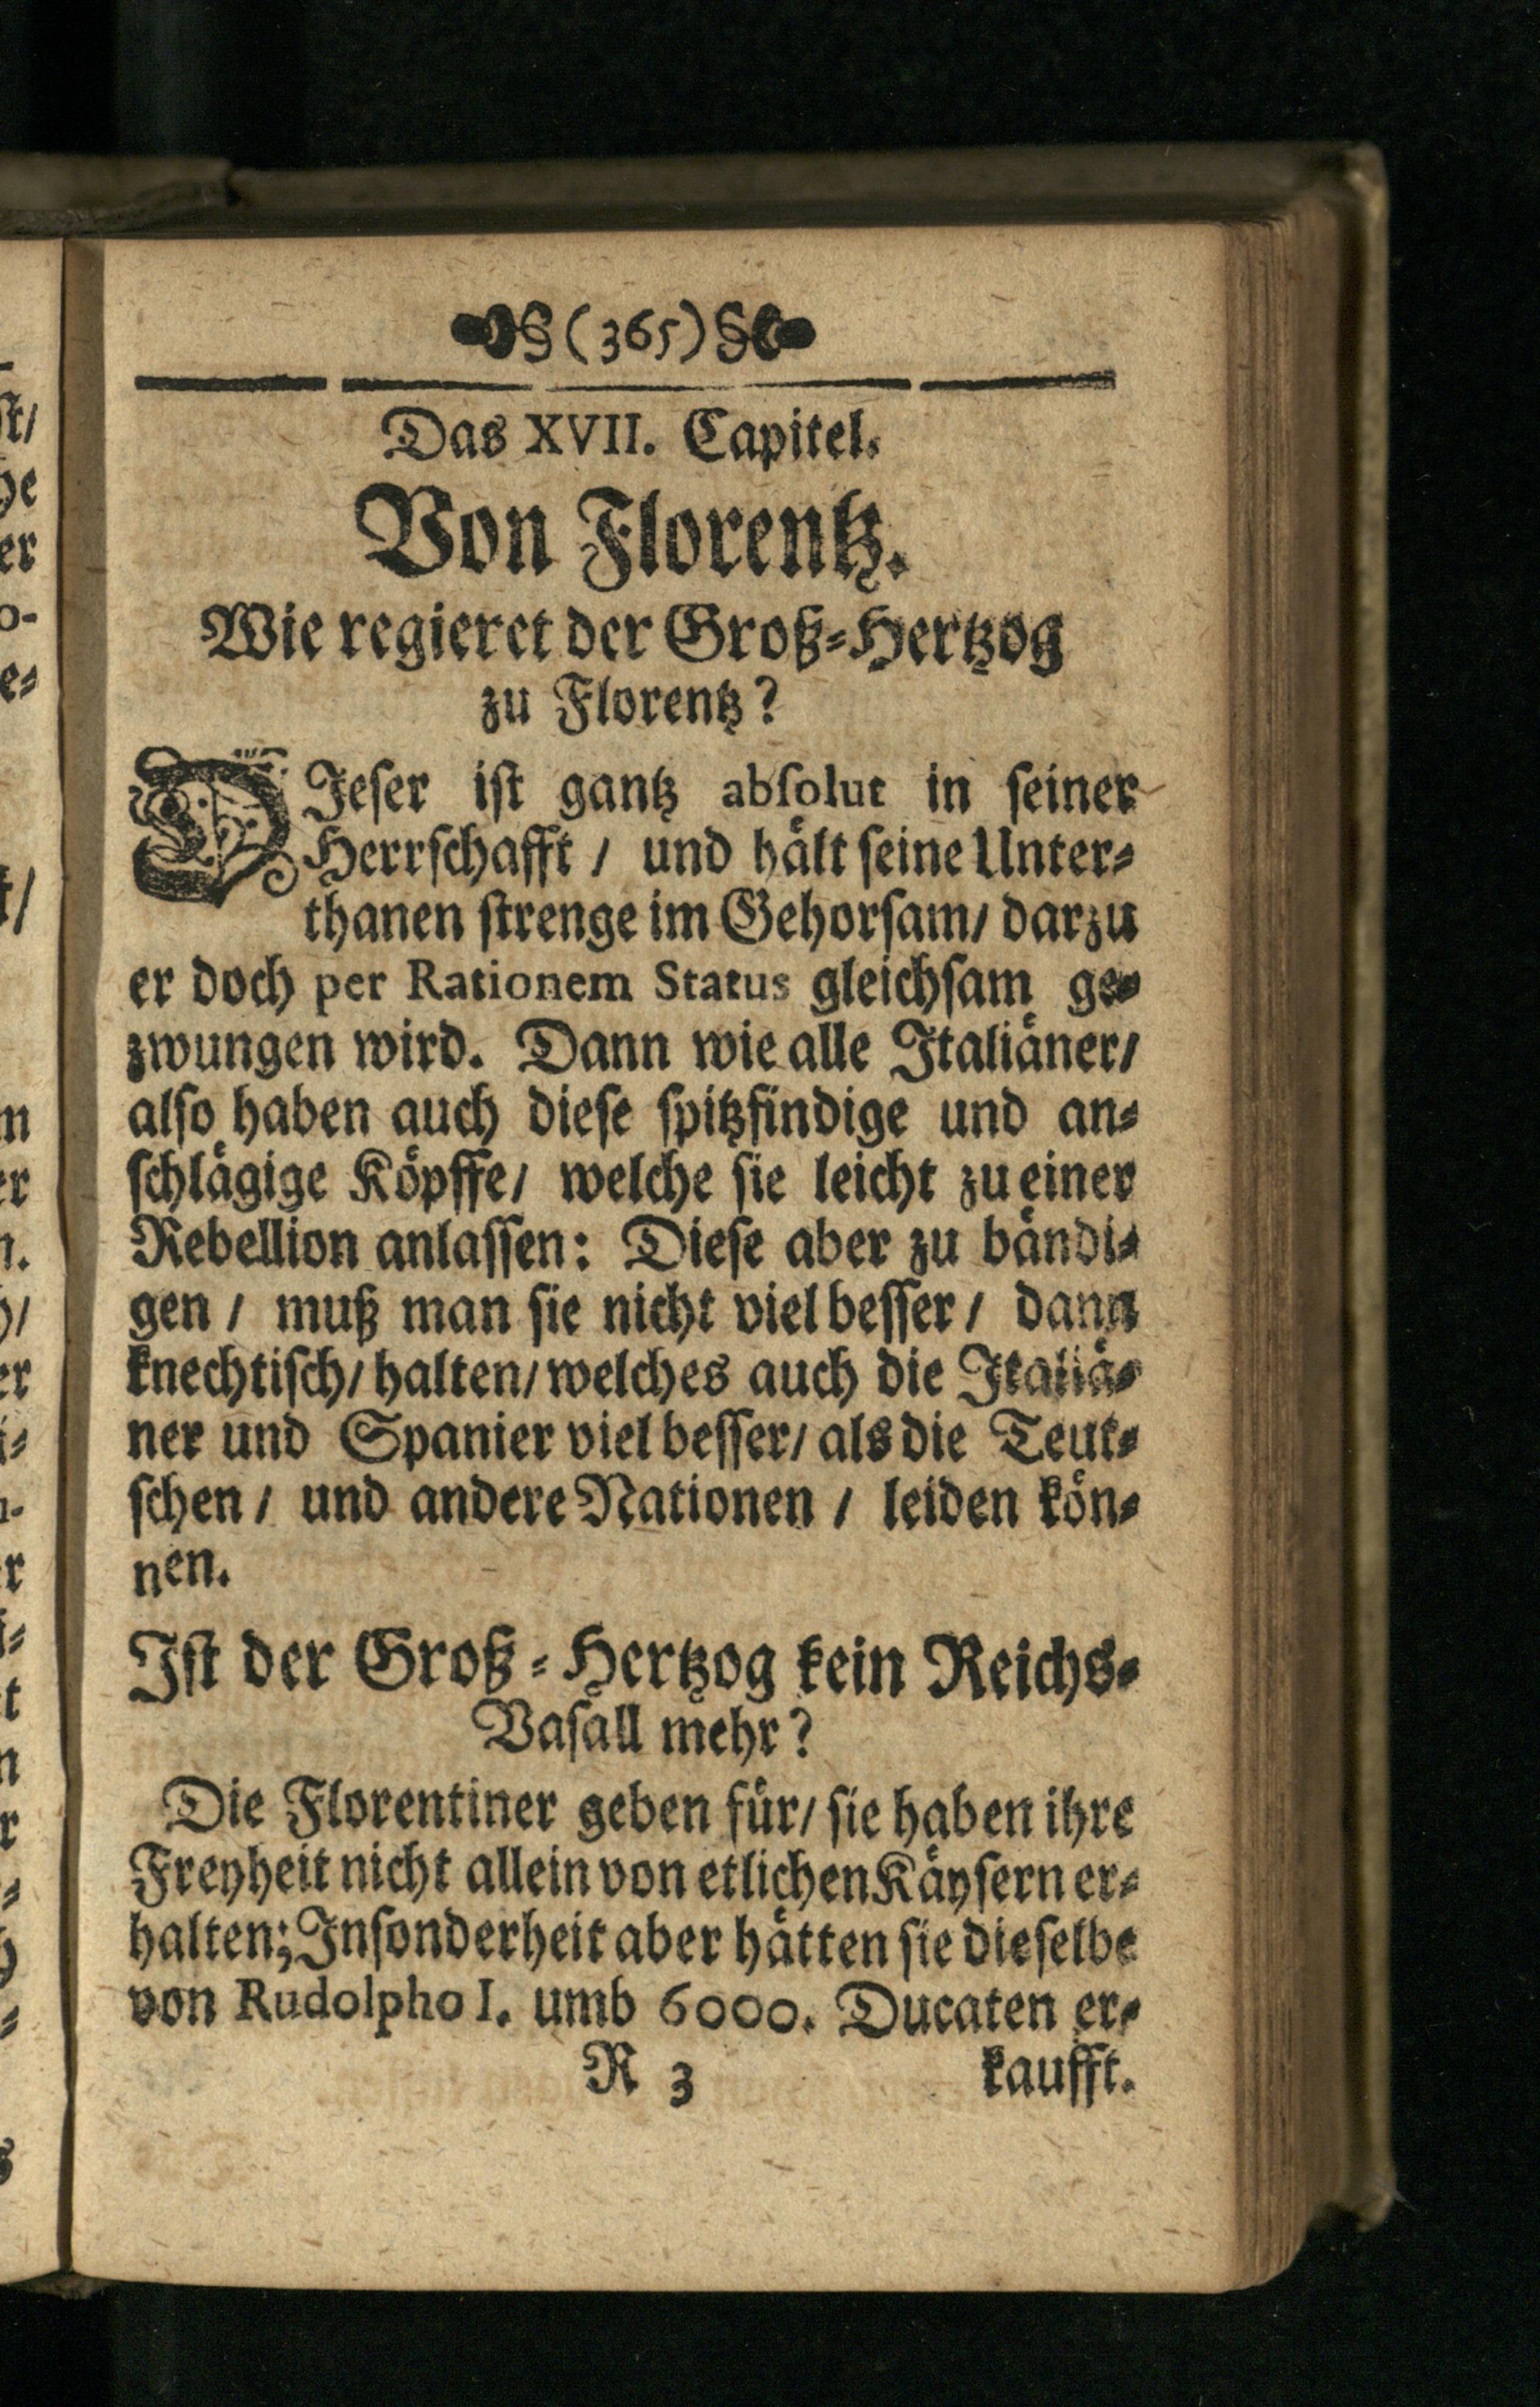 §(365)§
Das XVII. Capitel.
Von Florentz.
Wie regieret der Groß-Hertzog
zu Florentz?
DIeser ist gantz absolut in seiner
Herrschafft / und hält seine Unter-
thanen strenge im Gehorsam/ darzu
er doch per Rationem Status gleichsam ge-
zwungen wird. Dann wie alle Italiäner/
also haben auch diese spitzfindige und an-
schlägige Köpffe/ welche sie leicht zu einer
Rebellion anlassen: Diese aber zu bändi-
gen / muß man sie nicht viel besser / dann
knechtisch/ halten/ welches auch die Italiä-
ner und Spanier viel besser/ als die Teut-
schen / und andere Nationen / leiden kön-
nen.
Ist der Groß-Hertzog kein Reichs-
Vasall mehr?
Die Florentiner geben für/ sie haben ihre
Freyheit nicht allein von etlichen Käysern er-
halten; Insonderheit aber hätten sie dieselbe
von Rudolpho I. umb 6000. Ducaten er-
R 3 kaufft.